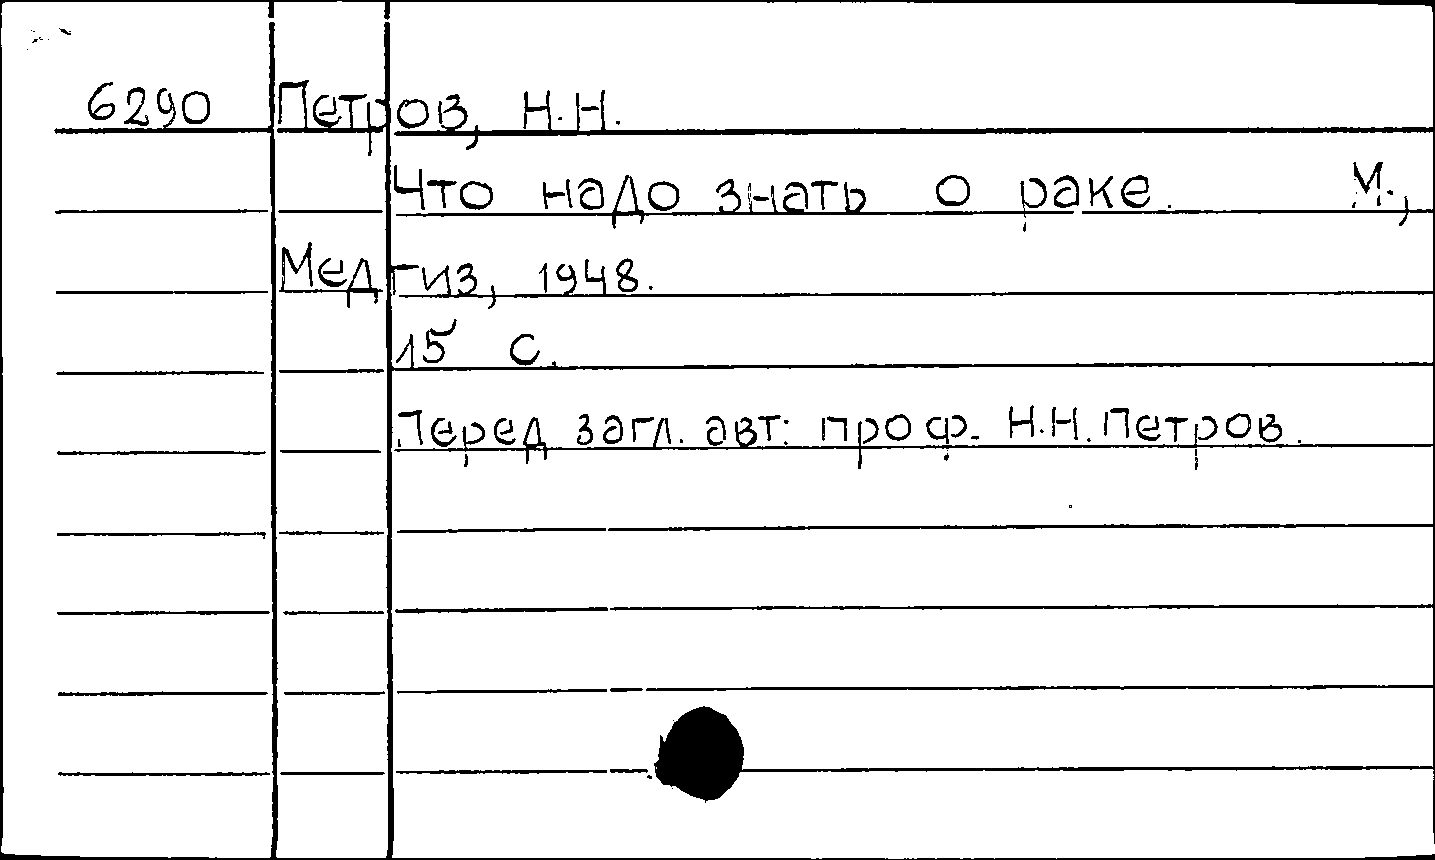 6290 Петров, Н.Н.
Что надо знать о раке. М.,
Медгиз, 1948.
15 с.
Перед загл. авт: проф. Н.Н. Петров.